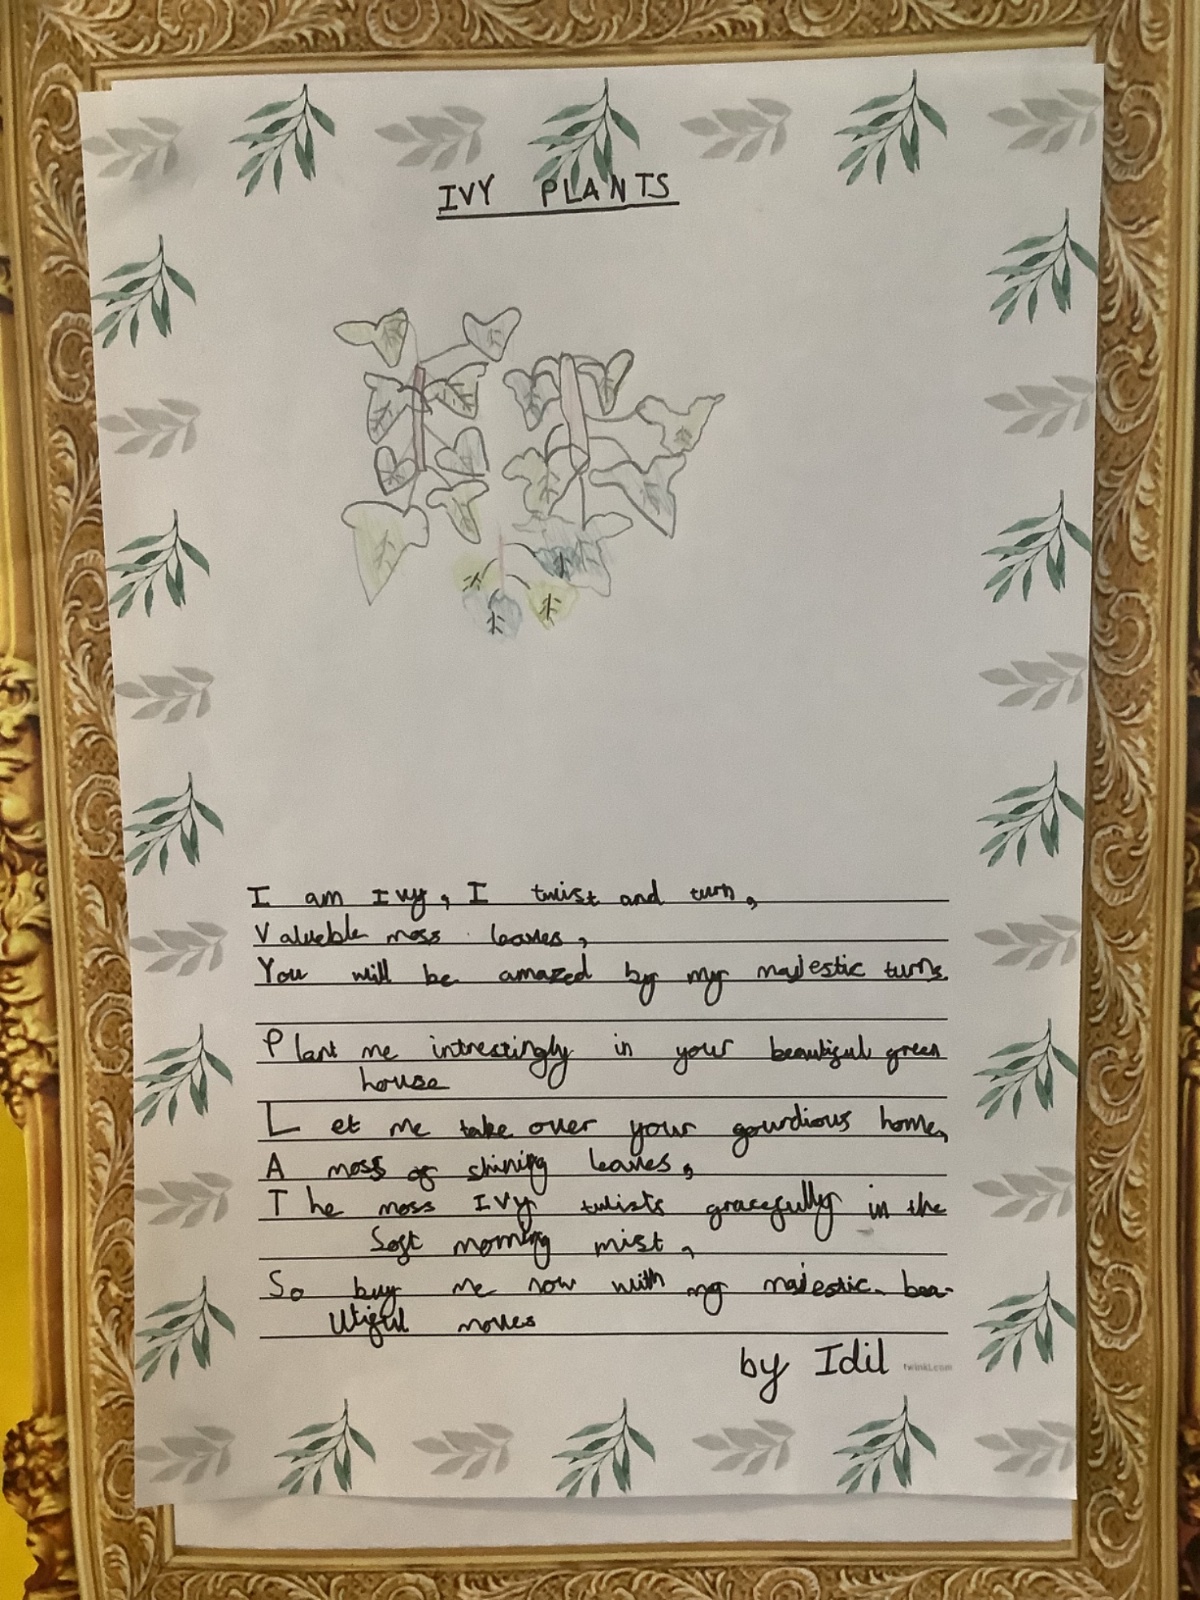 IVY PLANTS
I am Ivy, I twist and turn,
Valueble moss leaves,
You will be amazed by my majestic turns.
Plant me intrestingly in your beautiful green
house
Let me take over your gourdious home,
A moss of shining leaves,
The moss IVy twists gracefully in the
Soft morning mist,
So buy me now with my majestic bea-
Utiful moves
by Idil
twinkl.com